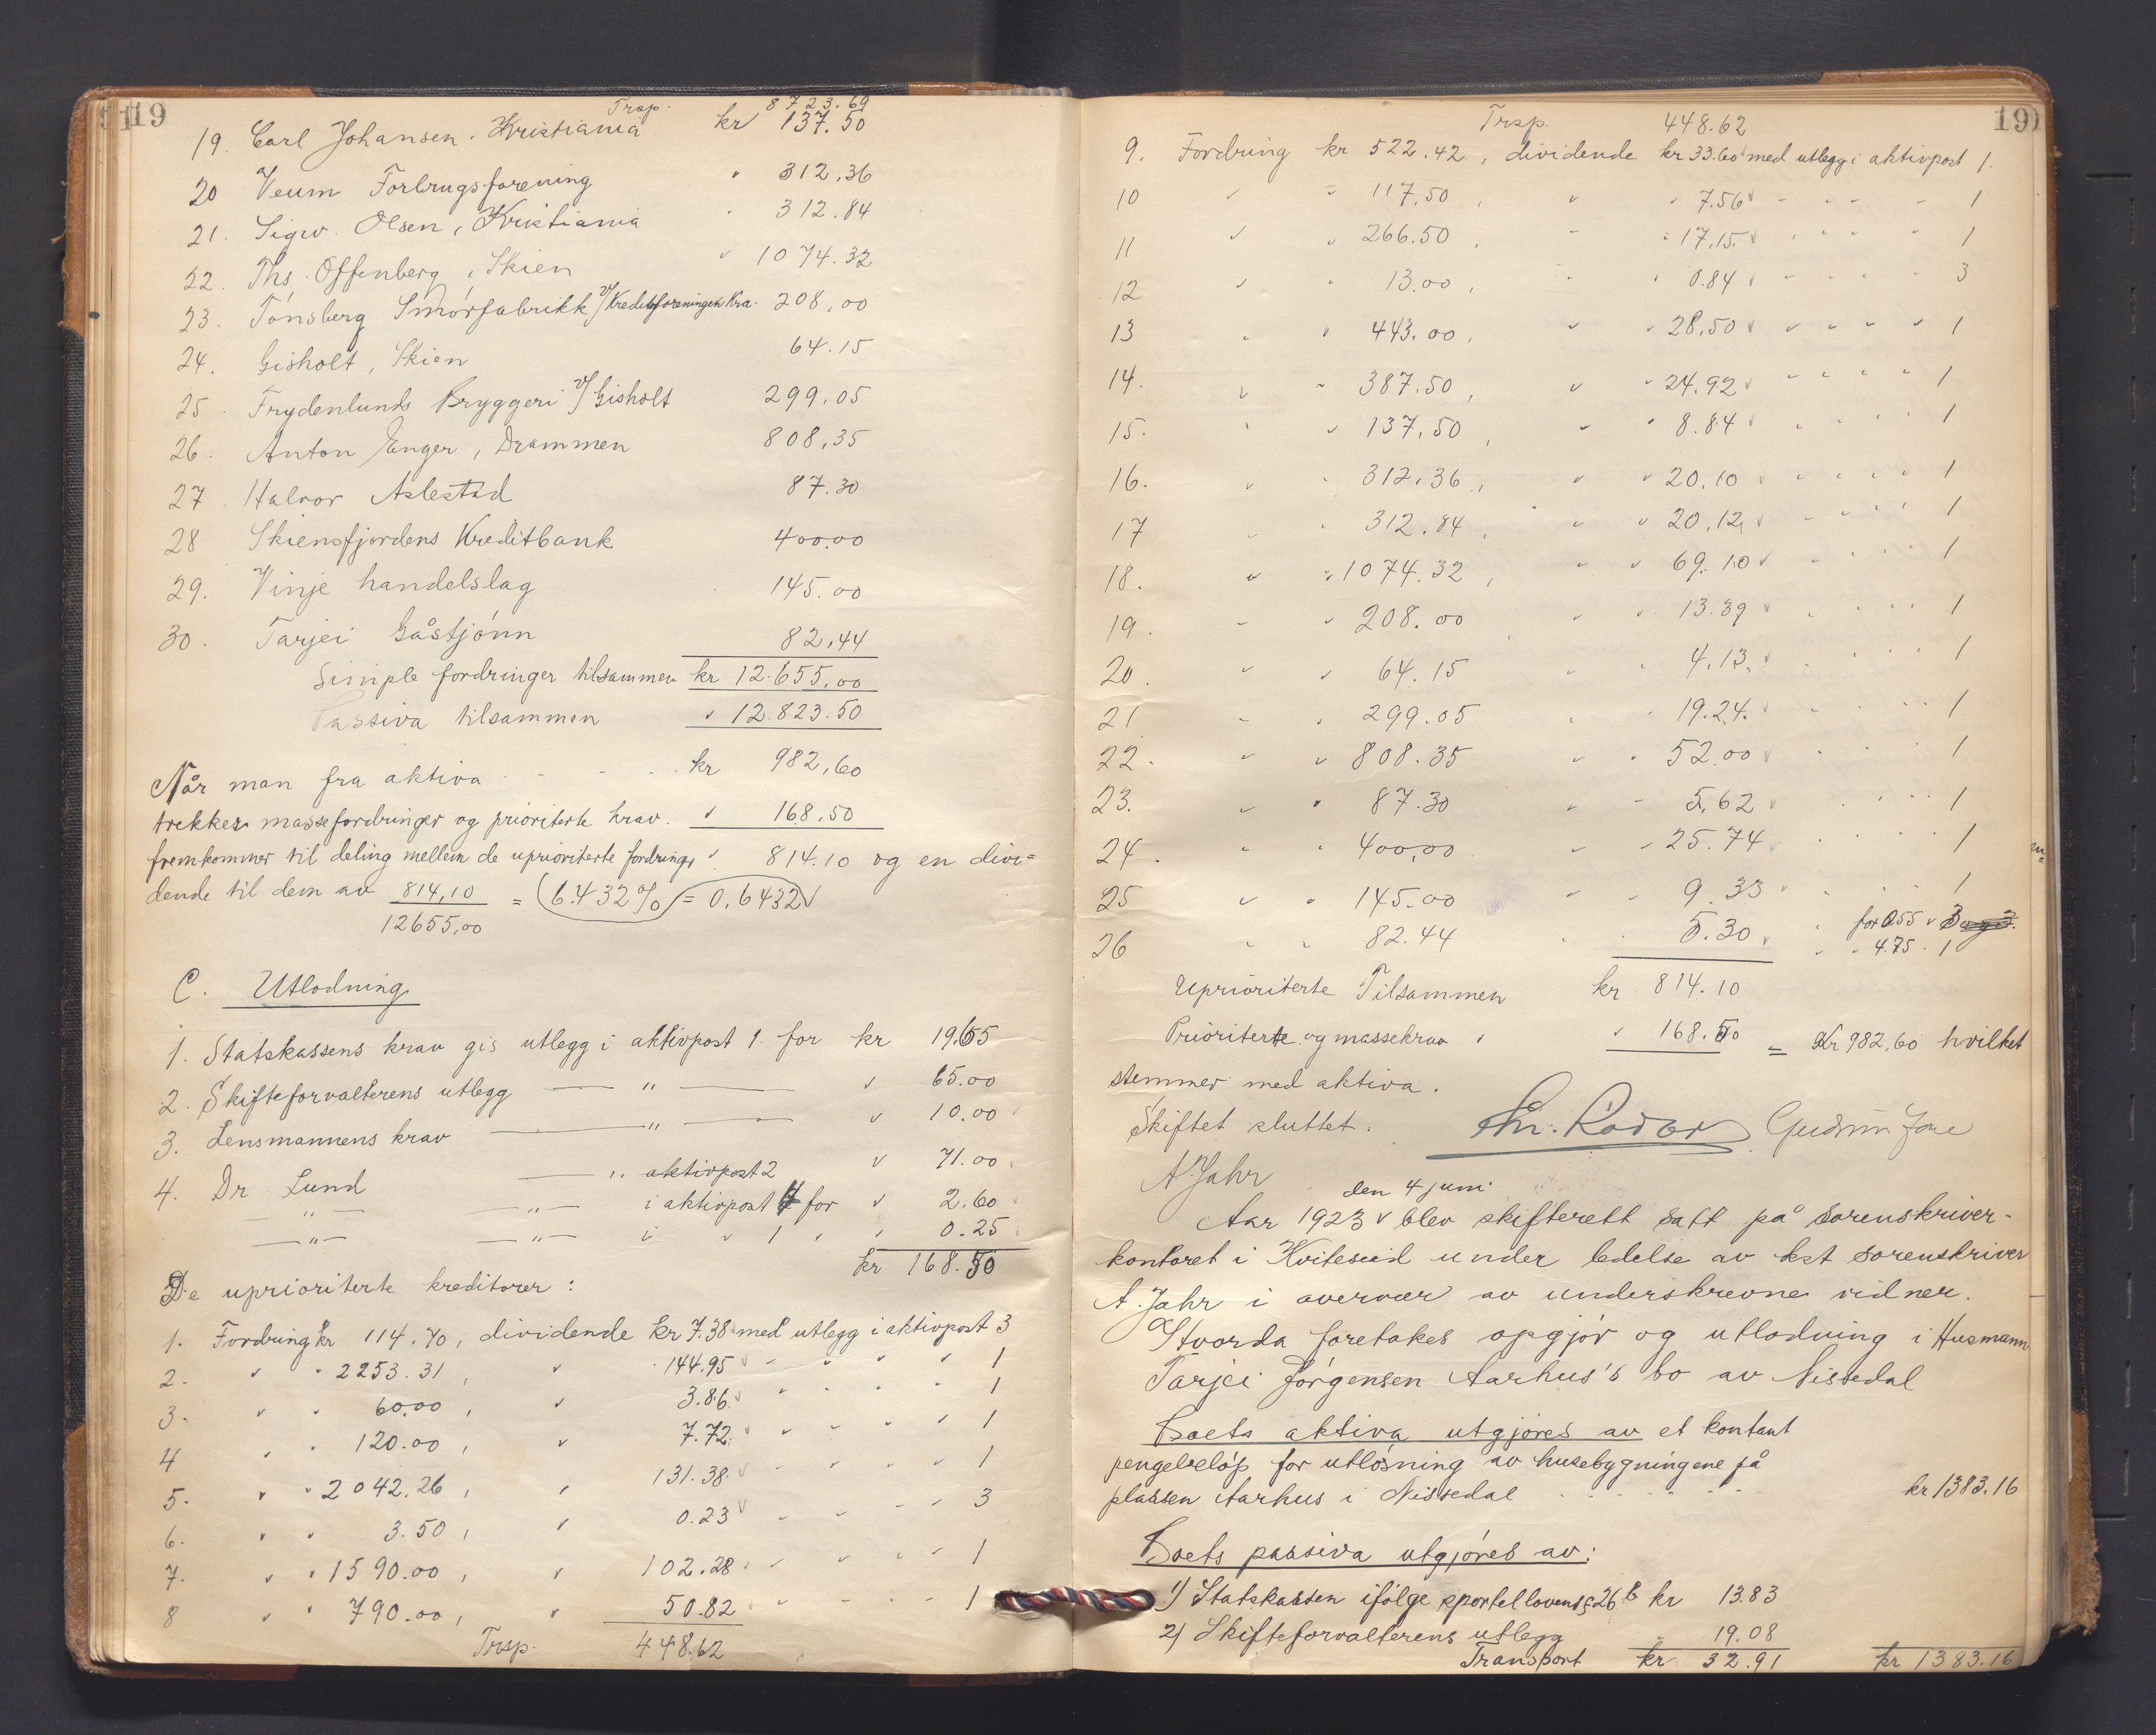 119
Trsp. 8723.69
19. Carl Johansen. Kristiania kr 137.50
20 Veum Forbrugsforening " 312,36
21. Sigw. Olsen, Kristiania " 312.84
22. Ths. Offenberg, Skien " 1074.32
23. Tønsberg Smørfabrikk v/Kreditforeningen Kra. 208,00
24. Gisholt, Skien 64.15
25. Frydenlunds Bryggeri v/Gisholt 299.05
26. Anton Enger, Drammen 808,35
27 Halvor Aslestad 87.30
28 Skiensfjordens Kreditbank 400.00
29. Vinje handelslag 145.00
30. Tarjei Gåstjønn 82,44
Simple fordringer tilsammen kr 12.655,00
Passiva tilsammen " 12.823.50
Når man fra aktiva - - - kr 982,60
trekker massefordringer og prioriterte krav. " 168,50
fremkommer til deling mellem de uprioriterte fordringer " 814.10 og en divi=
dende til dem av 814,10 / 12655,00 = 6.432% = 0,6432
C. Utlodning
1. Statskassens krav gis utlegg i aktivpost 1. for kr 19.65
2. Skifteforvalterens utlegg — " — " 65.00
3. Lensmannens krav — " — " 10.00
4. Dr Lund — " aktivpost 2 " 71.00
— " — — " — i aktivpost 4 for " 2.60
— " — — " — i " 1 " " 0.25
kr 168.50
De uprioriterte kreditorer:
1. Fordring kr 114.70, dividende kr 7.38 med utlegg i aktivpost 3
2. " " 2253.31, " 144.95 " " " " 1
3. " " 60.00, " 3.86 " " " " 1
4 " " 120.00, " 7.72 " " " " 1
5. " " 2042.26, " 131.38 " " " " 1
6. " " 3.50, " 0.23 " " " " 3
7. " " 1590.00, " 102.28 " " " " 1
8 " " 790.00, " 50.82 " " " " 1
Trsp. 448.62
19
Trsp. 448.62
9. Fordring kr 522.42, dividende kr 33.60 med utlegg i aktivpost 1.
10 " " 117.50, " " 7.56 " " " " 1
11 " " 266.50, " " 17.15 " " " " 1
12 " " 13.00, " " 0.84 " " " " 3
13 " " 443.00, " " 28.50 " " " " 1
14. " " 387.50, " " 24.92 " " " " 1
15. " " 137.50, " " 8.84 " " " " 1
16. " " 312.36, " " 20.10 " " " " 1
17 " " 312.84, " " 20.12 " " " " 1
18. " " 1074.32, " " 69.10 " " " " 1
19. " " 208.00 " " 13.39 " " " " 1
20. " " 64.15 " " 4.13. " " " " 1
21 " " 299.05 " " 19.24. " " " " 1
22. " " 808.35 " " 52.00 " " " " 1
23. " " 87.30 " " 5.62 " " " " 1
24. " " 400.00 " " 25.74 " " " " 1
25 " " 145.00 " " 9.33 " " " " 1
26 " " 82.44 " " 5.30 " for 0.55 " 3
" " 4.75 " 1
Uprioriterte Tilsammen kr 814.10
Prioriterte og massekrav " " 168.50 = Kr 982.60 hvilket
stemmer med aktiva.
Skiftet sluttet.
A. Jahr
den 4 juni
Aar 1923 blev skifterett satt på sorenskriver-
kontoret i Kviteseid under ledelse av kst sorenskriver
A. Jahr i overvær av underskrevne vidner.
Hvorda foretakes opgjør og utlodning i Husmann
Tarjei Jørgensen Aarhus's bo av Nissedal
Boets aktiva utgjøres av et kontant
pengebeløp for utløsning av husebygningene på
plassen Aarhus i Nissedal - - - - kr 1383.16
Boets passiva utgjøres av:
1) Statskassen ifølge sportellovens § 26 b kr 13.83
2) Skifteforvalterens utlegg " 19.08
Transport kr 32.91 kr 1383.16